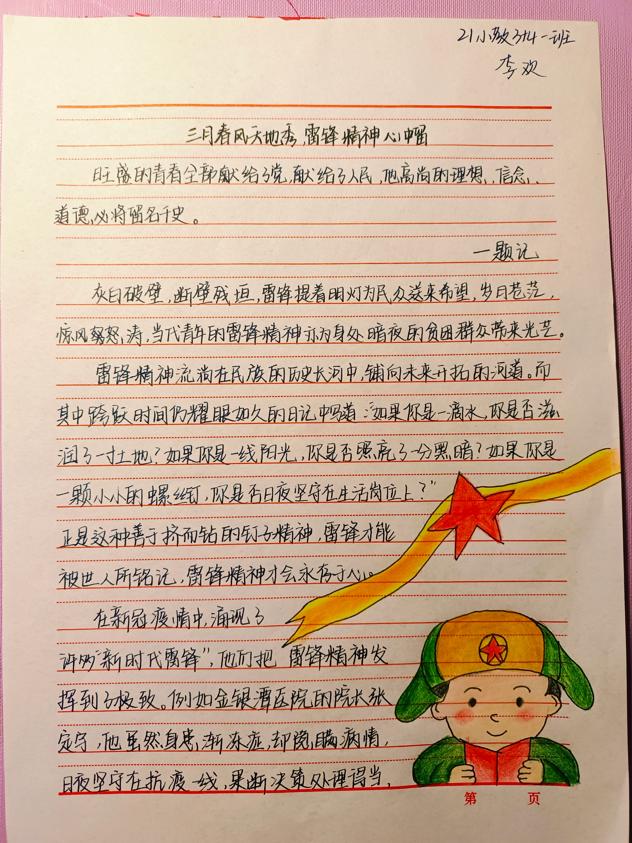 21小教3+4一班
李欢
三月春风天地秀,雷锋精神心中留
旺盛的青春全部献给了党,献给了人民,他高尚的理想、信念、
道德必将留名于史。
—题记
灰白破壁,断壁残垣,雷锋提着明灯为民众送来希望,岁月苍茫,
惊风怒涛,当代青年的雷锋精神亦为身处暗夜的贫困群众带来光芒。
雷锋精神流淌在民族的历史长河中,铺向未来开拓的河道。而
其中跨跃时间仍耀眼如久的日记中写道:“如果你是一滴水,你是否滋
润了一寸土地?如果你是一线阳光,你是否照亮了一分黑暗?如果你是
一颗小小的螺丝钉,你是否日夜坚守在生活岗位上?”
正是这种善于挤而钻的钉子精神,雷锋才能
被世人所铭记,雷锋精神才会永存于心。
在新冠疫情中,涌现了
许多“新时代雷锋”,他们把雷锋精神发
挥到了极致。例如金银潭医院的院长张
定宇,他虽然身患渐冻症,却隐瞒病情,
日夜坚守在抗疫一线,果断决策处理得当,
第 页